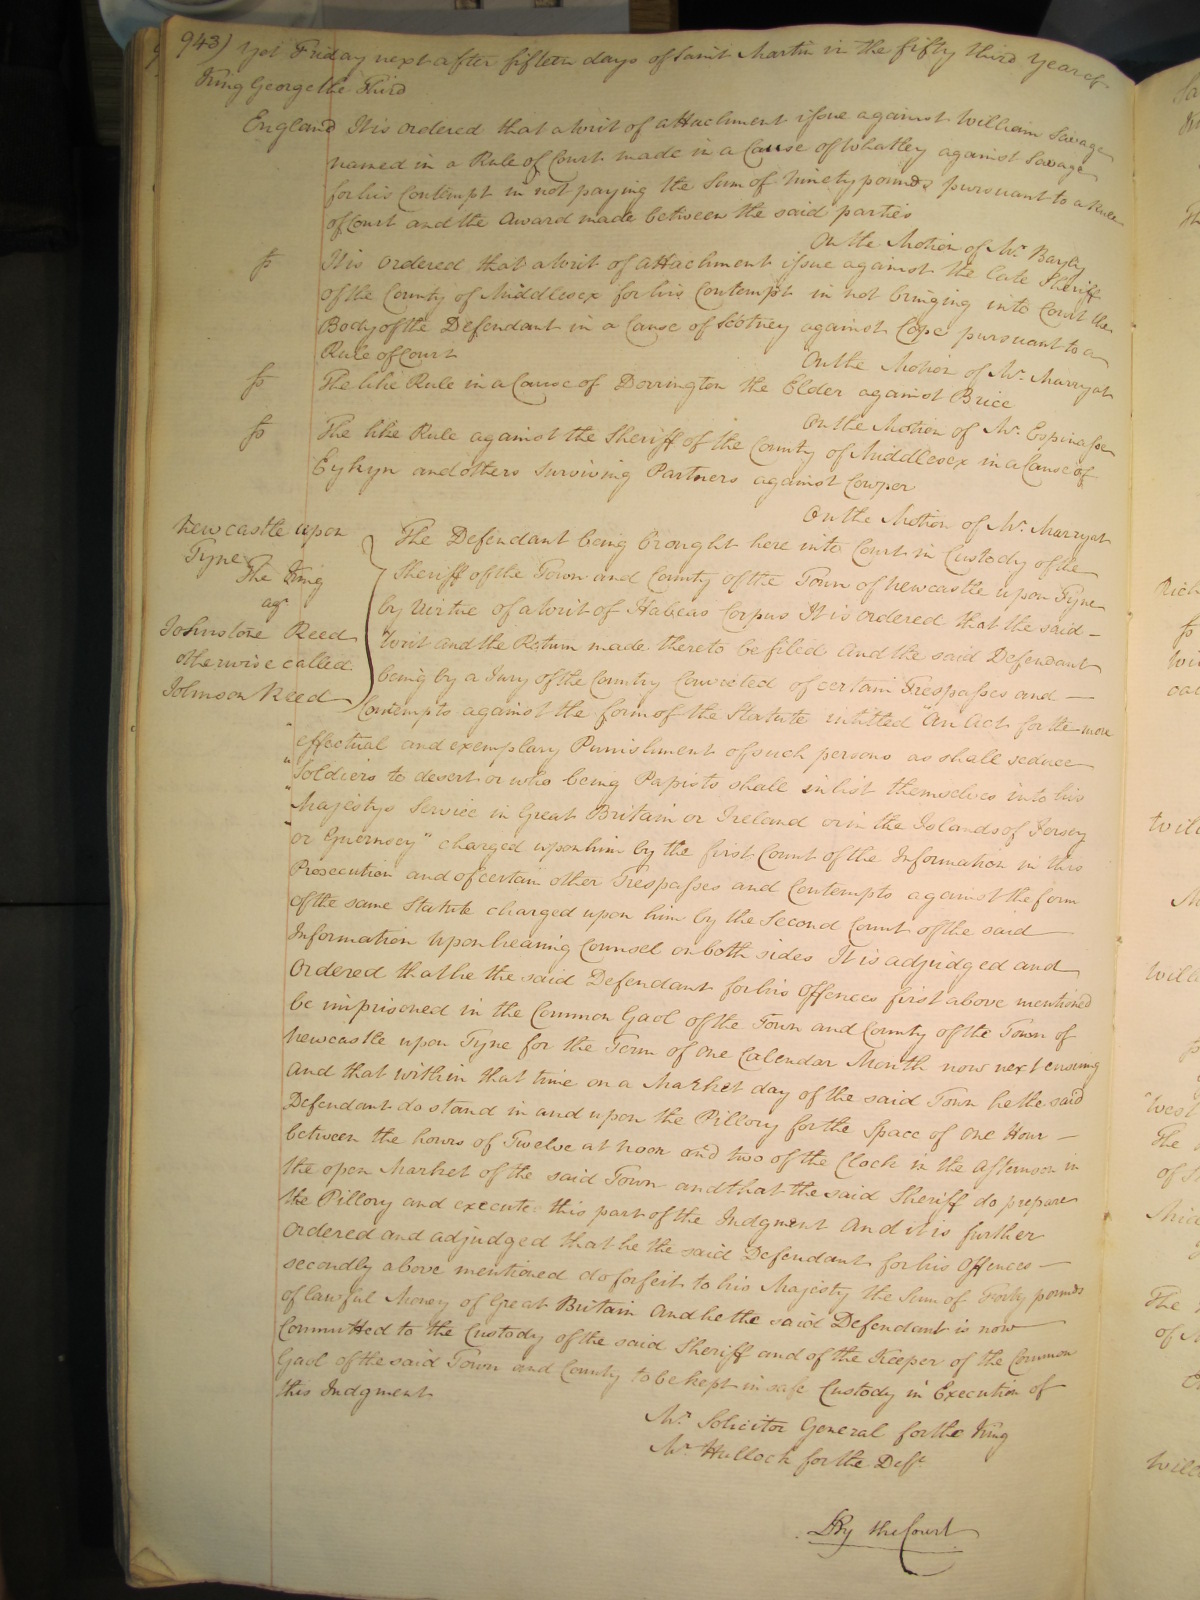 943) Yet Friday next after fifteen days of Saint Martin in the fifty third year of
King George the Third
England It is ordered that a Writ of attachment issue against William Savage
named in a Rule of Court made in a Cause of Whatley against Savage
for his Contempt in not paying the Sum of Ninety pounds pursuant to a Rule
of Court and the Award made between the said parties
On the Motion of Mr. Bayly
It is ordered that a Writ of Attachment issue against the late Sheriff
of the County of Middlesex for his Contempt in not bringing into Court the
Body of the Defendant in a Cause of Scotney against Cope pursuant to a
Rule of Court
On the Motion of Mr. Marryat
The like Rule in a Cause of Dorrington the Elder against Brice
On the Motion of Mr. Espinasse
The like Rule against the Sheriff of the County of Middlesex in a Cause of
Eykyn and others surviving Partners against Cowper
On the Motion of Mr. Marryat
Newcastle upon
Tyne
The King
agt
Johnstone Reed
otherwise called
Johnson Reed
The Defendant being brought here into Court in Custody of the
Sheriff of the Town and County of the Town of Newcastle upon Tyne
by Virtue of a Writ of Habeas Corpus It is ordered that the said –
Writ and the Return made thereto be filed And the said Defendant
being by a Jury of the Country Convicted of certain Trespasses and –
Contempts against the form of the Statute intitled "An Act for the more
" effectual and exemplary Punishment of such persons as shall seduce
" Soldiers to desert or who being Papists shall inlist themselves into his
" Majestys Service in Great Britain or Ireland or in the Islands of Jersey
or Guernsey" charged upon him by the first Count of the Information in this
Prosecution and of certain other Trespasses and Contempts against the form
of the same Statute charged upon him by the Second Count of the said
Information Upon hearing Counsel on both sides It is adjudged and
Ordered that he the said Defendant for his Offences first above mentioned
be imprisoned in the Common Gaol of the Town and County of the Town of
Newcastle upon Tyne for the Term of one Calendar Month now next ensuing
And that within that time on a Market day of the said Town he the said
Defendant do stand in and upon the Pillory for the Space of one Hour –
between the hours of Twelve at noon and two of the Clock in the afternoon in
the open Market of the said Town and that the said Sheriff do prepare
the Pillory and execute this part of the Judgment And it is further
Ordered and adjudged that he the said Defendant for his Offences –
secondly above mentioned do forfeit to his Majesty the Sum of Forty pounds
of lawful Money of Great Britain And he the said Defendant is now
Committed to the Custody of the said Sheriff and of the Keeper of the Common
Gaol of the said Town and County to be kept in safe Custody in Execution of
this Judgment
Mr. Solicitor General for the King
Mr. Hullock for the Deft
By the Court